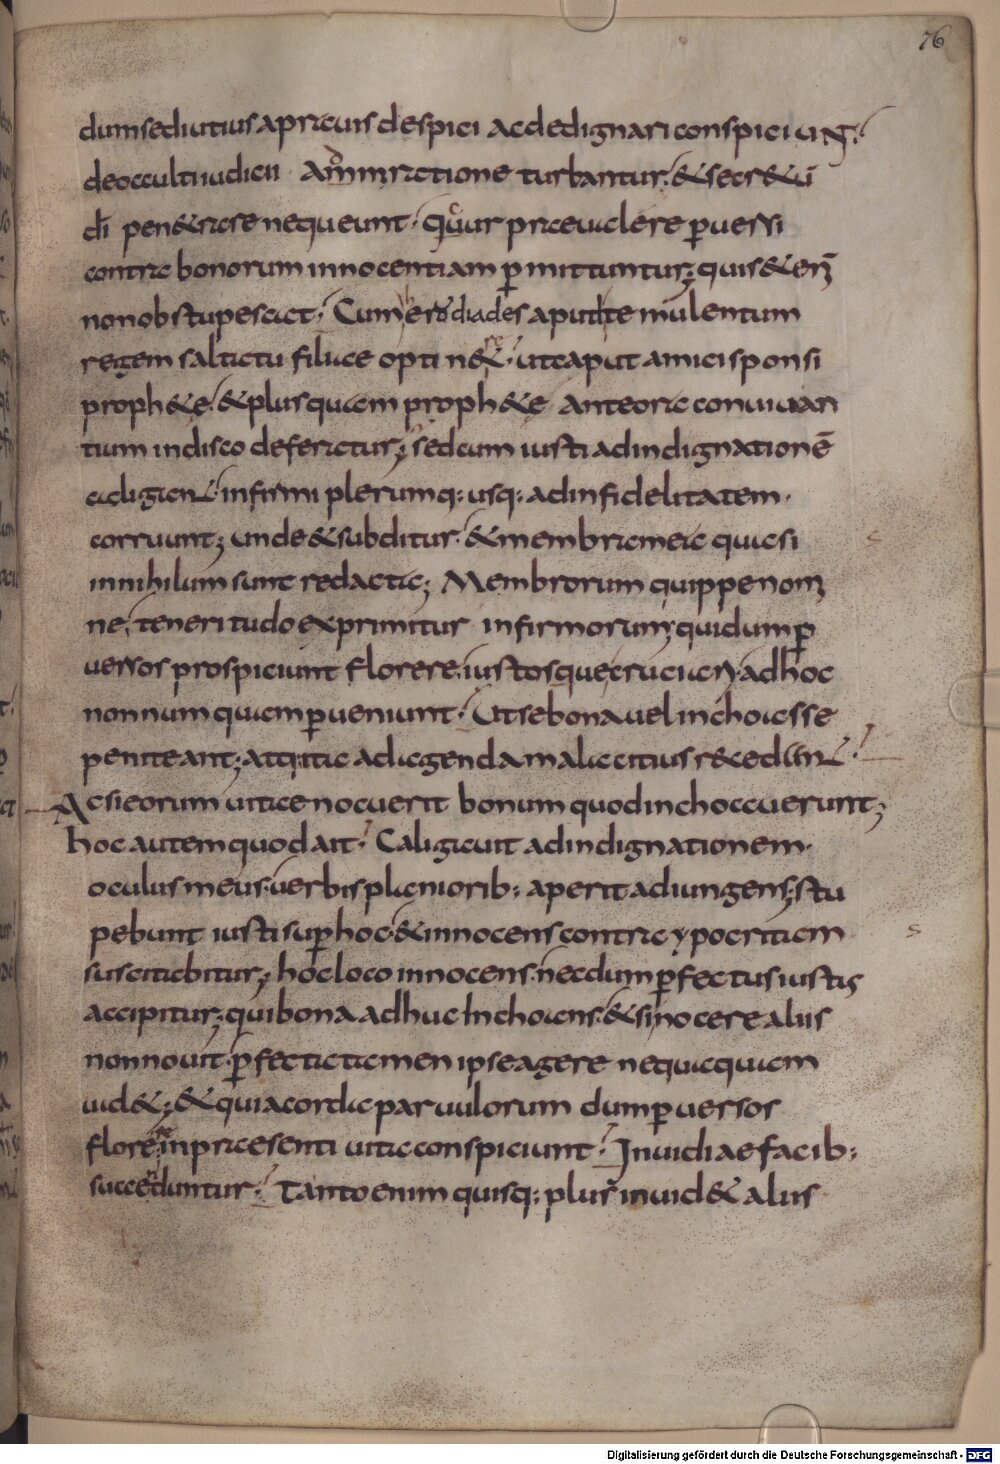 76
dum se diutius a prauis despici ac dedignari conspiciunt.
de occulti iudicii ammiratione turbantur. & secr&ū
dī pen&rare nequeunt. Quur praeualere puersi
contra bonorum innocentiam pmittuntur; quis &enī
non obstupescat. Cum erodiades aput te mulentum
regem saltatu filiae optin&. ut caput amici sponsi
proph&e. & plus quam proph&e. Ante ora conuiuan
tium in disco deferatur; sed cum iusti ad indignationē
caligant. infirmi plerumq: usq: ad infidelitatem.
corruunt; unde & subditur. & membra mea quasi
in nihilum sunt redacta; Membrorum quippe nom
ne, teneritudo exprimitur infirmorum; qui dum p
uersos prospiciunt florere, iustosque cruciari. ad hoc
non numquam pueniunt. Ut se bona uel inchoasse
peniteant; atq: ita ad agenda mala citius recedunt.
Ac si eorum uitae nocuerit bonum quod inchoauerunt;
hoc autem quod ait. Caligauit ad indignationem.
oculus meus. uerbis planiorib: aperit adiungens; stu
pebunt iusti sup hoc. & innocens contra ypocritam
suscitabitur; hoc loco innocens. necdum pfectus iustus
accipitur; qui bona adhuc inchoans. & si nocere aliis
non nouit. pfecta tamen ipse agere nequaquam
ual&; & quia corda paruulorum dum puersos
florere in praesenti uita conspiciunt. Inuidiae facib:
succenduntur. Tanto enim quisq: plus inuid& aliis
Digitalisierung gefördert durch die Deutsche Forschungsgemeinschaft - DFG